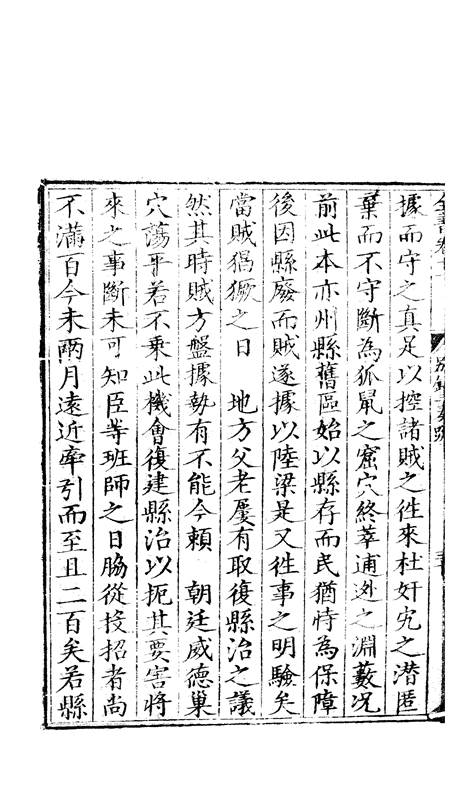 據而守之真足以控諸賊之徃來杜奸宄之潜匿
棄而不守斷為狐鼠之窟穴終萃逋逃之淵藪况
前此本亦州縣舊區始以縣存而民猶恃為保障
後因縣廢而賊遂據以陸梁是又徃事之明驗矣
當賊猖獗之日 地方父老屢有取復縣治之議
然其時賊方盤據勢有不能今賴 朝廷威德巢
穴蕩平若不乘此機會復建縣治以扼其要害將
來之事斷未可知臣等班師之日脇從投招者尚
不滿百今未兩月遠近牽引而至且二百矣若縣